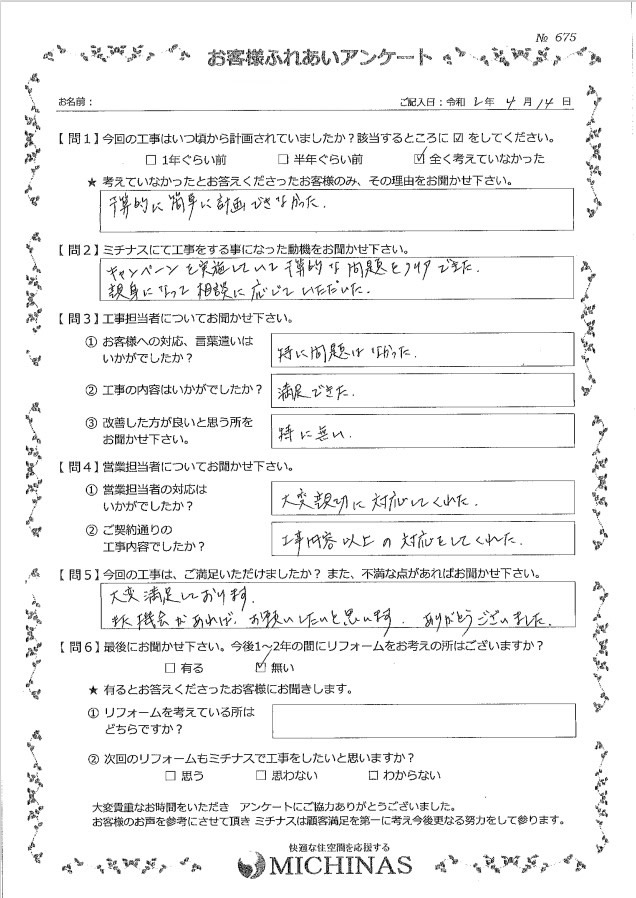 № 675
お客様ふれあいアンケート
お名前：
ご記入日：令和 2 年 4 月 14 日
【問1】今回の工事はいつ頃から計画されていましたか？該当するところに ☑ をしてください。
□ 1年ぐらい前 □ 半年ぐらい前 ☑ 全く考えていなかった
★ 考えていなかったとお答えくださったお客様のみ、その理由をお聞かせ下さい。
予算的に簡単に計画できなかった.
【問2】ミチナスにて工事をする事になった動機をお聞かせ下さい。
キャンペーンを実施していて予算的な問題をクリアできた.
親身になって相談に応じていただいた.
【問3】工事担当者についてお聞かせ下さい。
① お客様への対応、言葉遣いは
いかがでしたか？
特に問題はなかった.
② 工事の内容はいかがでしたか？
満足できた.
③ 改善した方が良いと思う所を
お聞かせ下さい。
特に無い.
【問4】営業担当者についてお聞かせ下さい。
① 営業担当者の対応は
いかがでしたか？
大変親切に対応してくれた.
② ご契約通りの
工事内容でしたか？
工事内容以上の対応をしてくれた.
【問5】今回の工事は、ご満足いただけましたか？ また、不満な点があればお聞かせ下さい。
大変満足しております.
また機会があれば, お願いしたいと思います. ありがとうございました.
【問6】最後にお聞かせ下さい。今後1～2年の間にリフォームをお考えの所はございますか？
□ 有る ☑ 無い
★ 有るとお答えくださったお客様にお聞きします。
① リフォームを考えている所は
どちらですか？
② 次回のリフォームもミチナスで工事をしたいと思いますか？
□ 思う □ 思わない □ わからない
大変貴重なお時間をいただき アンケートにご協力ありがとうございました。
お客様のお声を参考にさせて頂き ミチナスは顧客満足を第一に考え今後更なる努力をして参ります。
快適な住空間を応援する
MICHINAS